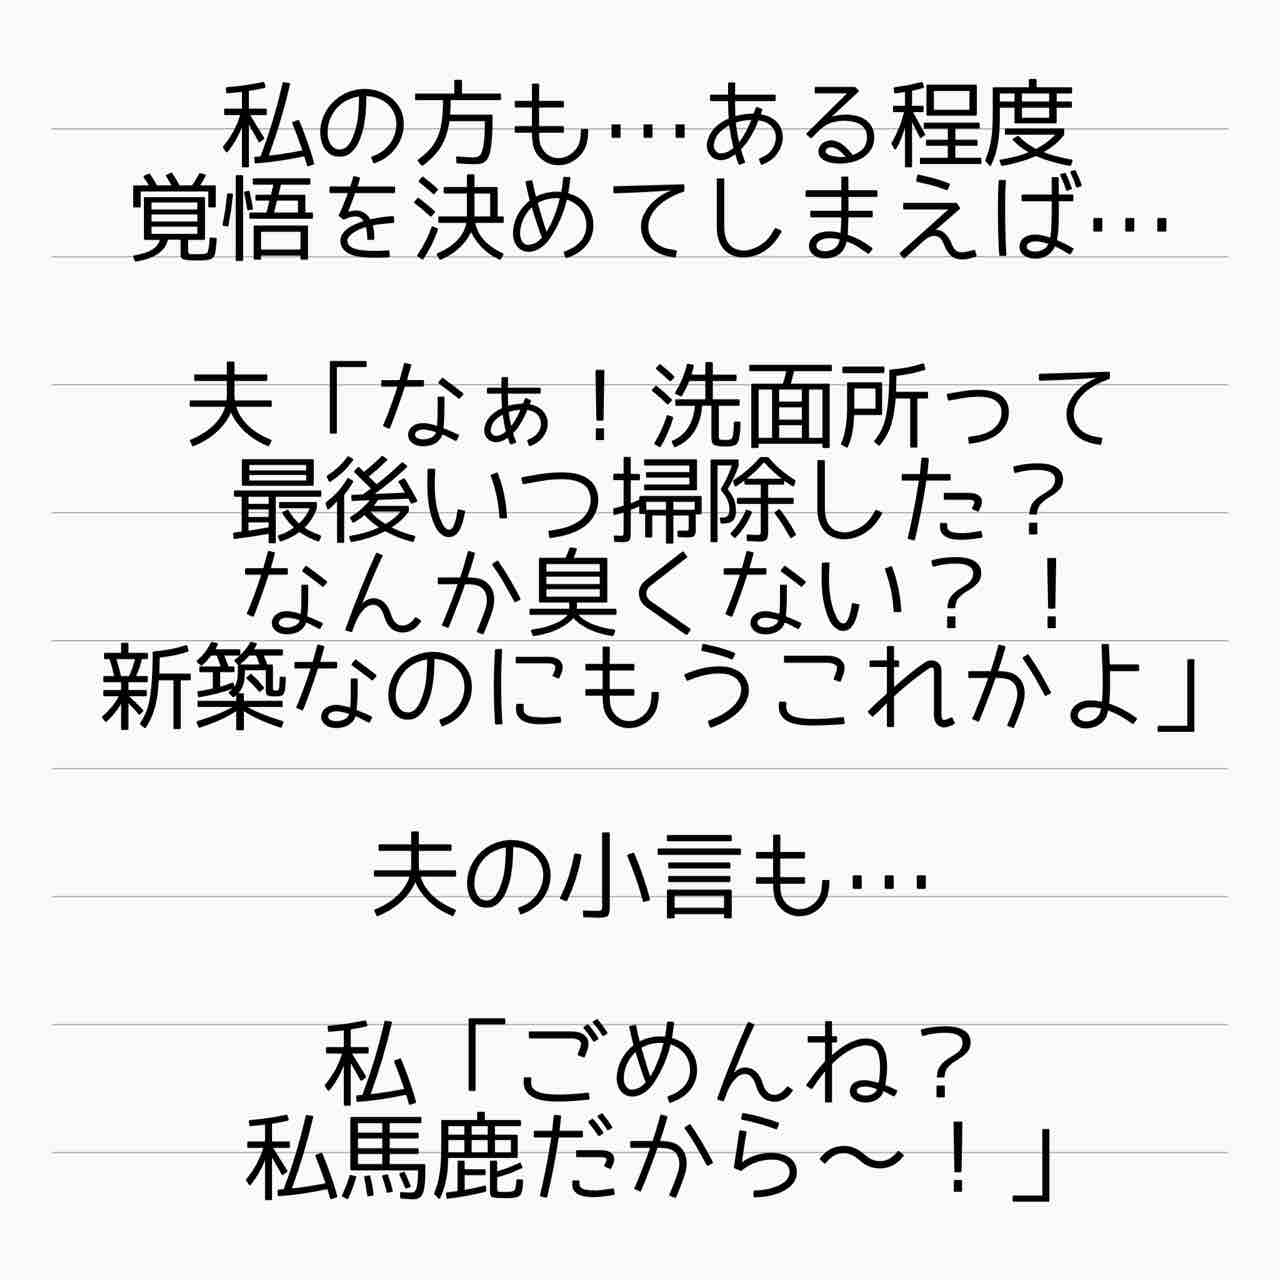 私の方も…ある程度
覚悟を決めてしまえば…
夫「なぁ！洗面所って
最後いつ掃除した？
なんか臭くない？！
新築なのにもうこれかよ」
夫の小言も…
私「ごめんね？
私馬鹿だから〜！」